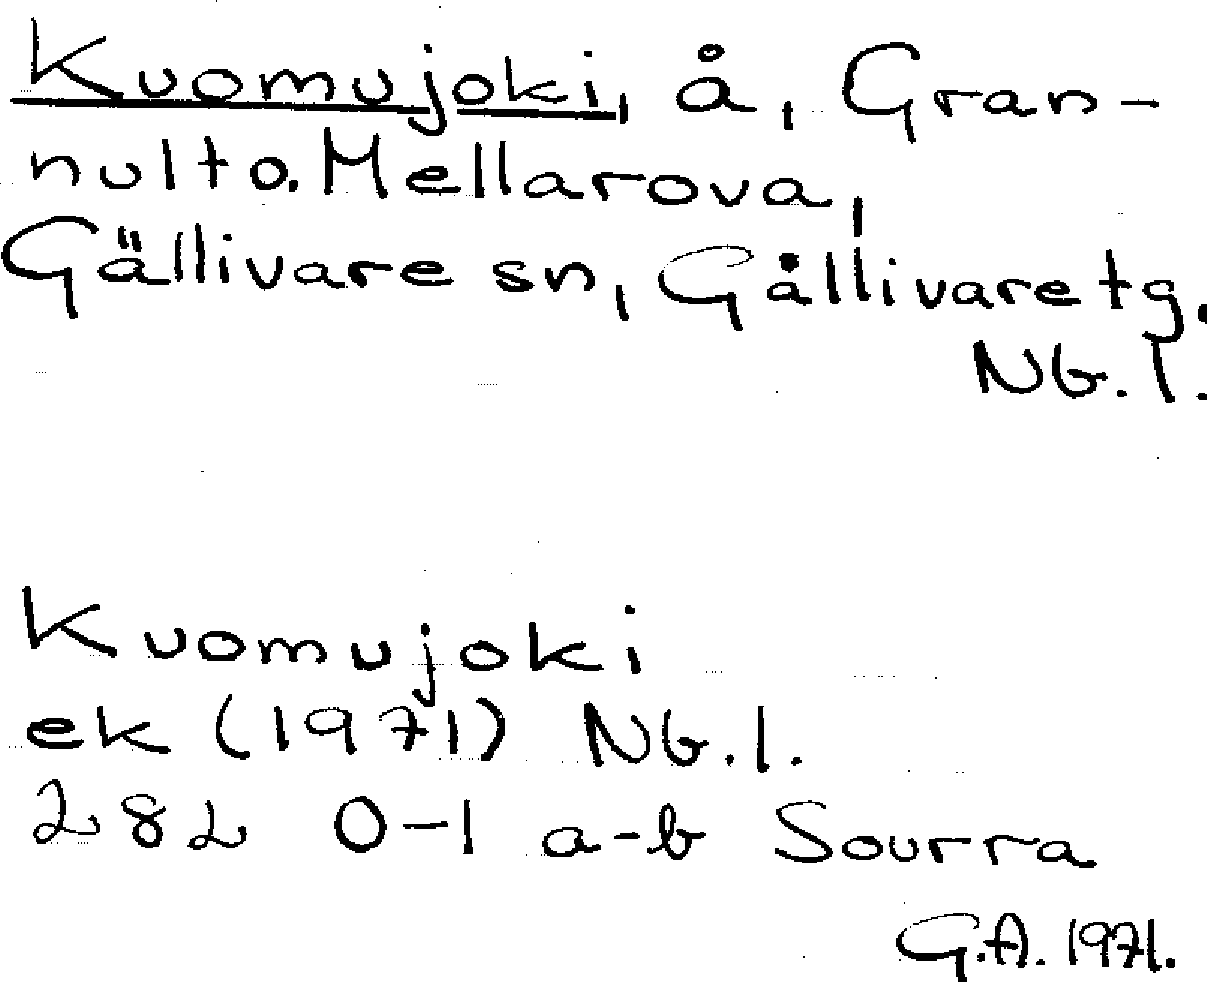 Kuomujoki, å, Gran-
nulto. Mellarova,
Gällivare sn, Gällivare tg.
Nb. l.
Kuomujoki
ek (1971) Nb. l.
282 0-1 a-b Sourra
G.A. 1971.